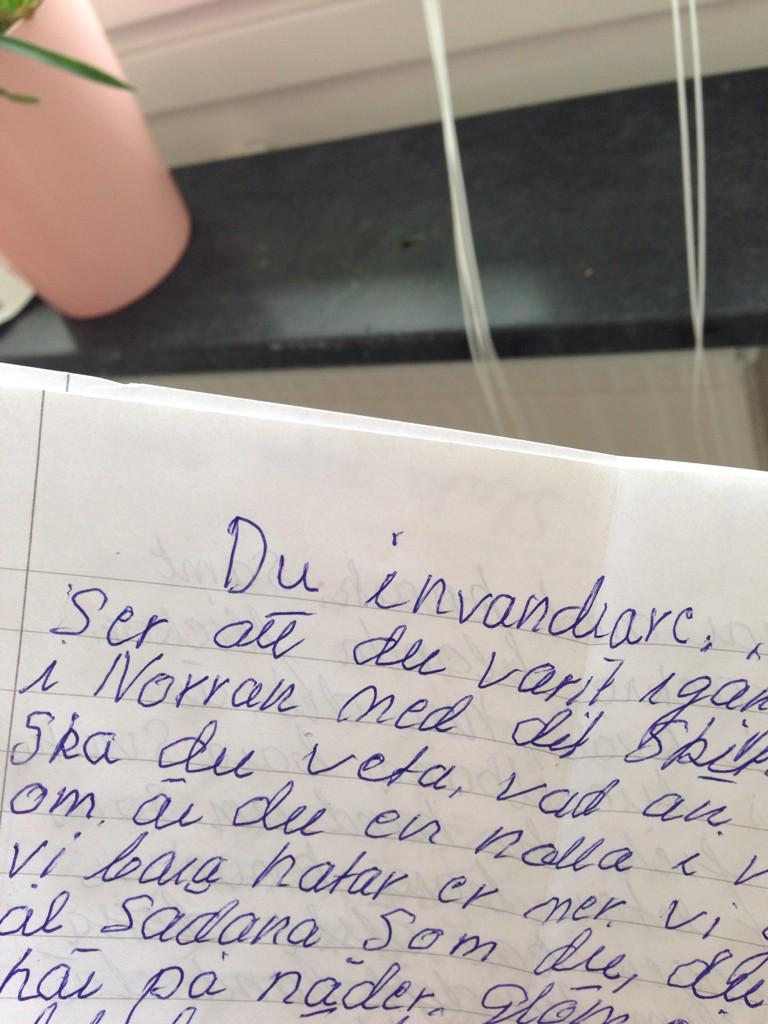 Du invandrare.
Ser att du varit igån
i Norran med dit
Ska du veta, vad an
om. är du en nolla i v
vi bara hatar er mer. vi
ål Sådana Som du, du
här på nåder. Glöm